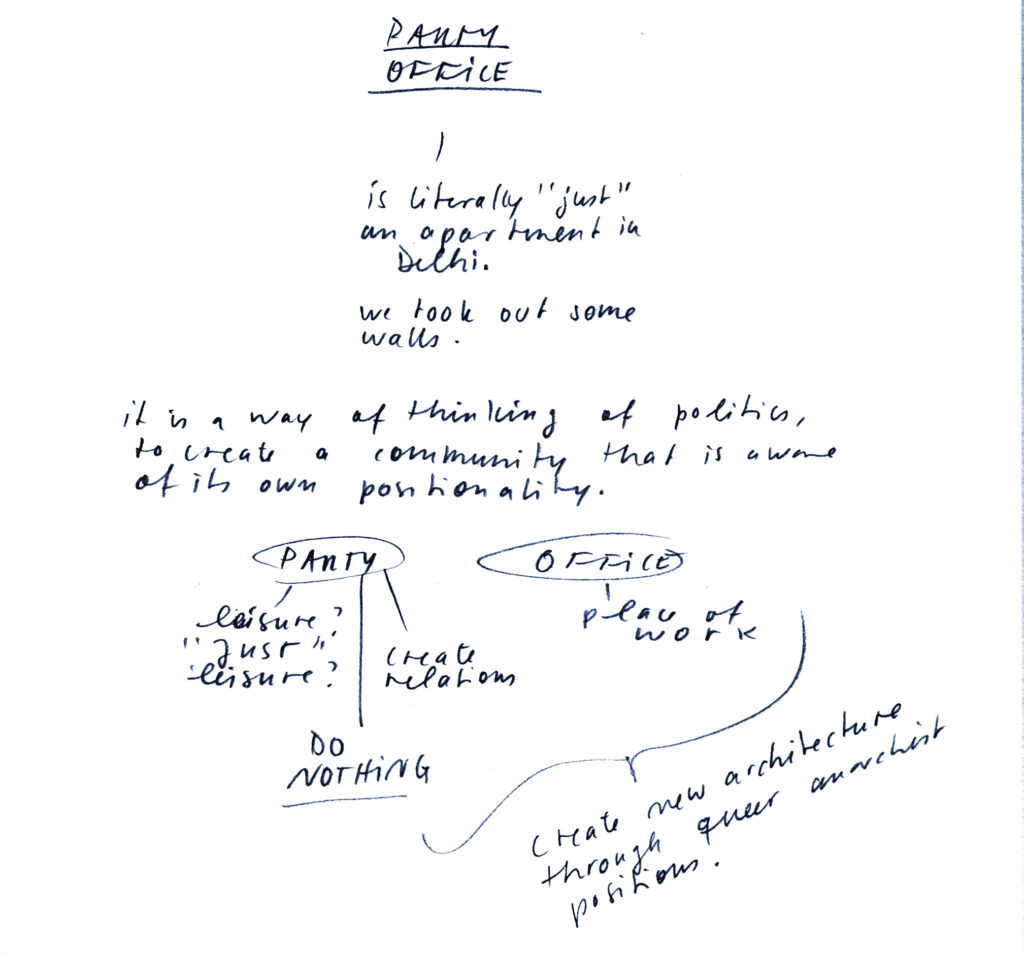 PARTY
OFFICE
is literally "just"
an apartment in
Delhi.
we took out some
walls.
it is a way of thinking of politics,
to create a community that is aware
of its own positionality.
PARTY
OFFICE
leisure?
"just"
leisure?
create
relations
DO
NOTHING
place of
work
create new architecture
through queer anarchist
positions.